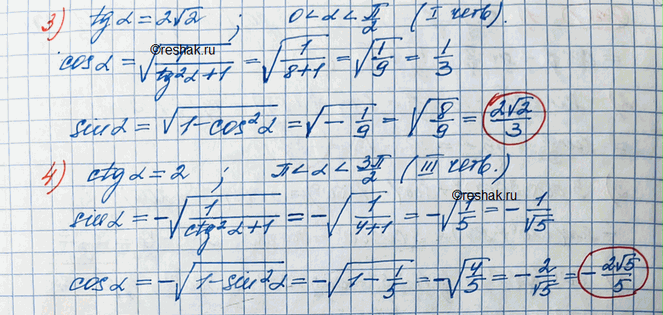 3) tg α = 2√2 ; 0 < α < π/2 (I четв).
cos α = √(1/(tg²α+1)) = √(1/(8+1)) = √(1/9) = 1/3
©reshak.ru
sin α = √(1-cos²α) = √(-1/9) = √(8/9) = 2√2/3
4) ctg α = 2 ; π < α < 3π/2 (III четв.)
©reshak.ru
sin α = -√(1/(ctg²α+1)) = -√(1/(4+1)) = -√(1/5) = -1/√5
cos α = -√(1-sin²α) = -√(1-1/5) = -√(4/5) = -2/√5 = -2√5/5